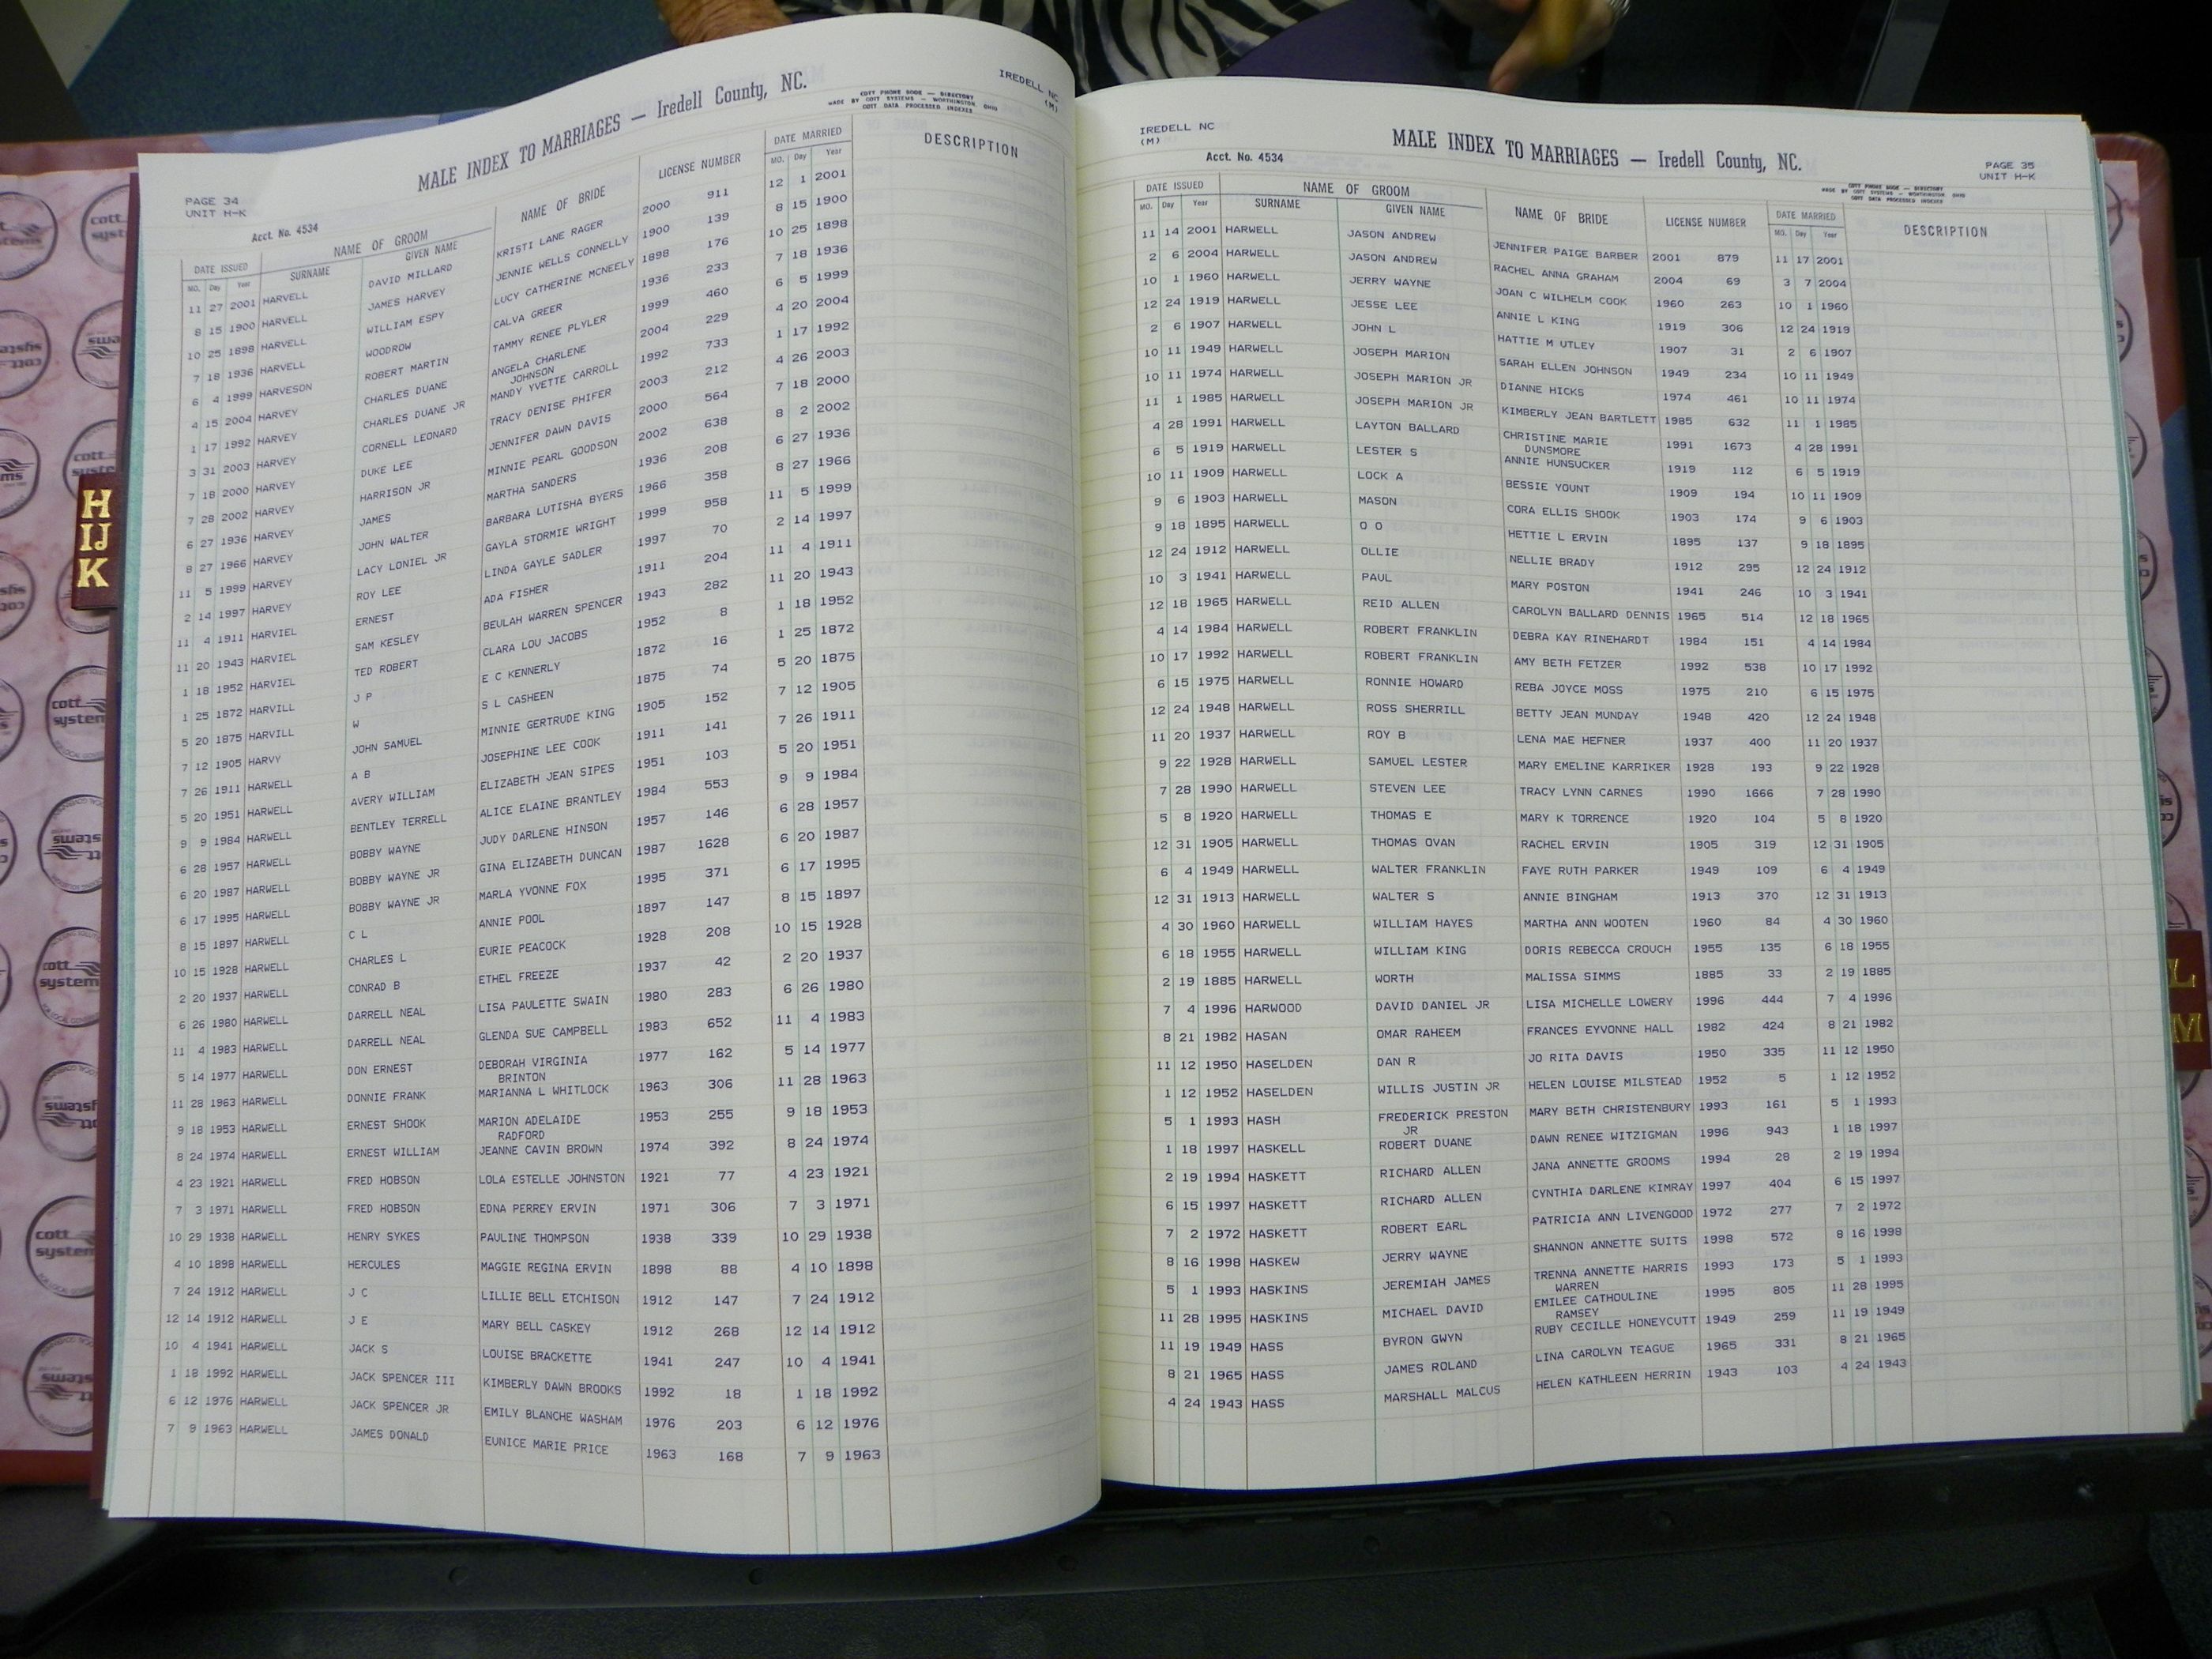 IREDELL NC
(M)
MALE INDEX TO MARRIAGES — Iredell County, NC.
COTT PHONE BOOK — DIRECTORY
MADE BY COTT SYSTEMS — WORTHINGTON, OHIO
COTT DATA PROCESSED INDEXES
PAGE 34
UNIT H-K
Acct. No. 4534
DATE ISSUED NAME OF GROOM NAME OF BRIDE LICENSE NUMBER DATE MARRIED DESCRIPTION
MO. Day Year SURNAME GIVEN NAME MO. Day Year
11 27 2001 HARVELL DAVID MILLARD KRISTI LANE RAGER 2000 911 12 1 2001
8 15 1900 HARVELL JAMES HARVEY JENNIE WELLS CONNELLY 1900 139 8 15 1900
10 25 1898 HARVELL WILLIAM ESPY LUCY CATHERINE MCNEELY 1898 176 10 25 1898
7 18 1936 HARVELL WOODROW CALVA GREER 1936 233 7 18 1936
6 4 1999 HARVESON ROBERT MARTIN TAMMY RENEE PLYLER 1999 460 6 5 1999
4 15 2004 HARVEY CHARLES DUANE ANGELA CHARLENE 2004 229 4 20 2004
JOHNSON
1 17 1992 HARVEY CHARLES DUANE JR MANDY YVETTE CARROLL 1992 733 1 17 1992
3 31 2003 HARVEY CORNELL LEONARD TRACY DENISE PHIFER 2003 212 4 26 2003
7 18 2000 HARVEY DUKE LEE JENNIFER DAWN DAVIS 2000 564 7 18 2000
7 28 2002 HARVEY HARRISON JR MINNIE PEARL GOODSON 2002 638 8 2 2002
6 27 1936 HARVEY JAMES MARTHA SANDERS 1936 208 6 27 1936
8 27 1966 HARVEY JOHN WALTER BARBARA LUTISHA BYERS 1966 358 8 27 1966
11 5 1999 HARVEY LACY LONIEL JR GAYLA STORMIE WRIGHT 1999 958 11 5 1999
2 14 1997 HARVEY ROY LEE LINDA GAYLE SADLER 1997 70 2 14 1997
11 4 1911 HARVIEL ERNEST ADA FISHER 1911 204 11 4 1911
11 20 1943 HARVIEL SAM KESLEY BEULAH WARREN SPENCER 1943 282 11 20 1943
1 18 1952 HARVIEL TED ROBERT CLARA LOU JACOBS 1952 8 1 18 1952
1 25 1872 HARVILL J P E C KENNERLY 1872 16 1 25 1872
5 20 1875 HARVILL W S L CASHEEN 1875 74 5 20 1875
7 12 1905 HARVY JOHN SAMUEL MINNIE GERTRUDE KING 1905 152 7 12 1905
7 26 1911 HARWELL A B JOSEPHINE LEE COOK 1911 141 7 26 1911
5 20 1951 HARWELL AVERY WILLIAM ELIZABETH JEAN SIPES 1951 103 5 20 1951
9 9 1984 HARWELL BENTLEY TERRELL ALICE ELAINE BRANTLEY 1984 553 9 9 1984
6 28 1957 HARWELL BOBBY WAYNE JUDY DARLENE HINSON 1957 146 6 28 1957
6 20 1987 HARWELL BOBBY WAYNE JR GINA ELIZABETH DUNCAN 1987 1628 6 20 1987
6 17 1995 HARWELL BOBBY WAYNE JR MARLA YVONNE FOX 1995 371 6 17 1995
8 15 1897 HARWELL C L ANNIE POOL 1897 147 8 15 1897
10 15 1928 HARWELL CHARLES L EURIE PEACOCK 1928 208 10 15 1928
2 20 1937 HARWELL CONRAD B ETHEL FREEZE 1937 42 2 20 1937
6 26 1980 HARWELL DARRELL NEAL LISA PAULETTE SWAIN 1980 283 6 26 1980
11 4 1983 HARWELL DARRELL NEAL GLENDA SUE CAMPBELL 1983 652 11 4 1983
5 14 1977 HARWELL DON ERNEST DEBORAH VIRGINIA 1977 162 5 14 1977
BRINTON
11 28 1963 HARWELL DONNIE FRANK MARIANNA L WHITLOCK 1963 306 11 28 1963
9 18 1953 HARWELL ERNEST SHOOK MARION ADELAIDE 1953 255 9 18 1953
RADFORD
8 24 1974 HARWELL ERNEST WILLIAM JEANNE CAVIN BROWN 1974 392 8 24 1974
4 23 1921 HARWELL FRED HOBSON LOLA ESTELLE JOHNSTON 1921 77 4 23 1921
7 3 1971 HARWELL FRED HOBSON EDNA PERREY ERVIN 1971 306 7 3 1971
10 29 1938 HARWELL HENRY SYKES PAULINE THOMPSON 1938 339 10 29 1938
4 10 1898 HARWELL HERCULES MAGGIE REGINA ERVIN 1898 88 4 10 1898
7 24 1912 HARWELL J C LILLIE BELL ETCHISON 1912 147 7 24 1912
12 14 1912 HARWELL J E MARY BELL CASKEY 1912 268 12 14 1912
10 4 1941 HARWELL JACK S LOUISE BRACKETTE 1941 247 10 4 1941
1 18 1992 HARWELL JACK SPENCER III KIMBERLY DAWN BROOKS 1992 18 1 18 1992
6 12 1976 HARWELL JACK SPENCER JR EMILY BLANCHE WASHAM 1976 203 6 12 1976
7 9 1963 HARWELL JAMES DONALD EUNICE MARIE PRICE 1963 168 7 9 1963
IREDELL NC
(M)
Acct. No. 4534
MALE INDEX TO MARRIAGES — Iredell County, NC.
PAGE 35
UNIT H-K
COTT PHONE BOOK — DIRECTORY
MADE BY COTT SYSTEMS — WORTHINGTON, OHIO
COTT DATA PROCESSED INDEXES
DATE ISSUED NAME OF GROOM NAME OF BRIDE LICENSE NUMBER DATE MARRIED DESCRIPTION
MO. Day Year SURNAME GIVEN NAME MO. Day Year
11 14 2001 HARWELL JASON ANDREW JENNIFER PAIGE BARBER 2001 879 11 17 2001
2 6 2004 HARWELL JASON ANDREW RACHEL ANNA GRAHAM 2004 69 3 7 2004
10 1 1960 HARWELL JERRY WAYNE JOAN C WILHELM COOK 1960 263 10 1 1960
12 24 1919 HARWELL JESSE LEE ANNIE L KING 1919 306 12 24 1919
2 6 1907 HARWELL JOHN L HATTIE M UTLEY 1907 31 2 6 1907
10 11 1949 HARWELL JOSEPH MARION SARAH ELLEN JOHNSON 1949 234 10 11 1949
10 11 1974 HARWELL JOSEPH MARION JR DIANNE HICKS 1974 461 10 11 1974
11 1 1985 HARWELL JOSEPH MARION JR KIMBERLY JEAN BARTLETT 1985 632 11 1 1985
4 28 1991 HARWELL LAYTON BALLARD CHRISTINE MARIE 1991 1673 4 28 1991
DUNSMORE
6 5 1919 HARWELL LESTER S ANNIE HUNSUCKER 1919 112 6 5 1919
10 11 1909 HARWELL LOCK A BESSIE YOUNT 1909 194 10 11 1909
9 6 1903 HARWELL MASON CORA ELLIS SHOOK 1903 174 9 6 1903
9 18 1895 HARWELL O O HETTIE L ERVIN 1895 137 9 18 1895
12 24 1912 HARWELL OLLIE NELLIE BRADY 1912 295 12 24 1912
10 3 1941 HARWELL PAUL MARY POSTON 1941 246 10 3 1941
12 18 1965 HARWELL REID ALLEN CAROLYN BALLARD DENNIS 1965 514 12 18 1965
4 14 1984 HARWELL ROBERT FRANKLIN DEBRA KAY RINEHARDT 1984 151 4 14 1984
10 17 1992 HARWELL ROBERT FRANKLIN AMY BETH FETZER 1992 538 10 17 1992
6 15 1975 HARWELL RONNIE HOWARD REBA JOYCE MOSS 1975 210 6 15 1975
12 24 1948 HARWELL ROSS SHERRILL BETTY JEAN MUNDAY 1948 420 12 24 1948
11 20 1937 HARWELL ROY B LENA MAE HEFNER 1937 400 11 20 1937
9 22 1928 HARWELL SAMUEL LESTER MARY EMELINE KARRIKER 1928 193 9 22 1928
7 28 1990 HARWELL STEVEN LEE TRACY LYNN CARNES 1990 1666 7 28 1990
5 8 1920 HARWELL THOMAS E MARY K TORRENCE 1920 104 5 8 1920
12 31 1905 HARWELL THOMAS OVAN RACHEL ERVIN 1905 319 12 31 1905
6 4 1949 HARWELL WALTER FRANKLIN FAYE RUTH PARKER 1949 109 6 4 1949
12 31 1913 HARWELL WALTER S ANNIE BINGHAM 1913 370 12 31 1913
4 30 1960 HARWELL WILLIAM HAYES MARTHA ANN WOOTEN 1960 84 4 30 1960
6 18 1955 HARWELL WILLIAM KING DORIS REBECCA CROUCH 1955 135 6 18 1955
2 19 1885 HARWELL WORTH MALISSA SIMMS 1885 33 2 19 1885
7 4 1996 HARWOOD DAVID DANIEL JR LISA MICHELLE LOWERY 1996 444 7 4 1996
8 21 1982 HASAN OMAR RAHEEM FRANCES EYVONNE HALL 1982 424 8 21 1982
11 12 1950 HASELDEN DAN R JO RITA DAVIS 1950 335 11 12 1950
1 12 1952 HASELDEN WILLIS JUSTIN JR HELEN LOUISE MILSTEAD 1952 5 1 12 1952
5 1 1993 HASH FREDERICK PRESTON MARY BETH CHRISTENBURY 1993 161 5 1 1993
JR
1 18 1997 HASKELL ROBERT DUANE DAWN RENEE WITZIGMAN 1996 943 1 18 1997
2 19 1994 HASKETT RICHARD ALLEN JANA ANNETTE GROOMS 1994 28 2 19 1994
6 15 1997 HASKETT RICHARD ALLEN CYNTHIA DARLENE KIMRAY 1997 404 6 15 1997
7 2 1972 HASKETT ROBERT EARL PATRICIA ANN LIVENGOOD 1972 277 7 2 1972
8 16 1998 HASKEW JERRY WAYNE SHANNON ANNETTE SUITS 1998 572 8 16 1998
5 1 1993 HASKINS JEREMIAH JAMES TRENNA ANNETTE HARRIS 1993 173 5 1 1993
WARREN
11 28 1995 HASKINS MICHAEL DAVID EMILEE CATHOULINE 1995 805 11 28 1995
RAMSEY
11 19 1949 HASS BYRON GWYN RUBY CECILLE HONEYCUTT 1949 259 11 19 1949
8 21 1965 HASS JAMES ROLAND LINA CAROLYN TEAGUE 1965 331 8 21 1965
4 24 1943 HASS MARSHALL MALCUS HELEN KATHLEEN HERRIN 1943 103 4 24 1943
H
IJ
K
L
M
cott
systems